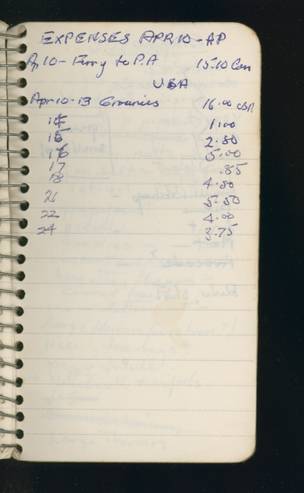 EXPENSES APR 10 - AP
Ap 10 - Ferry to P.A 15.10 Can
USA
Apr 10-13 Groceries 16.00 USA
14 1.00
15 2.80
16 5.00
17 .85
18 4.80
21 5.50
22 4.00
24 3.75